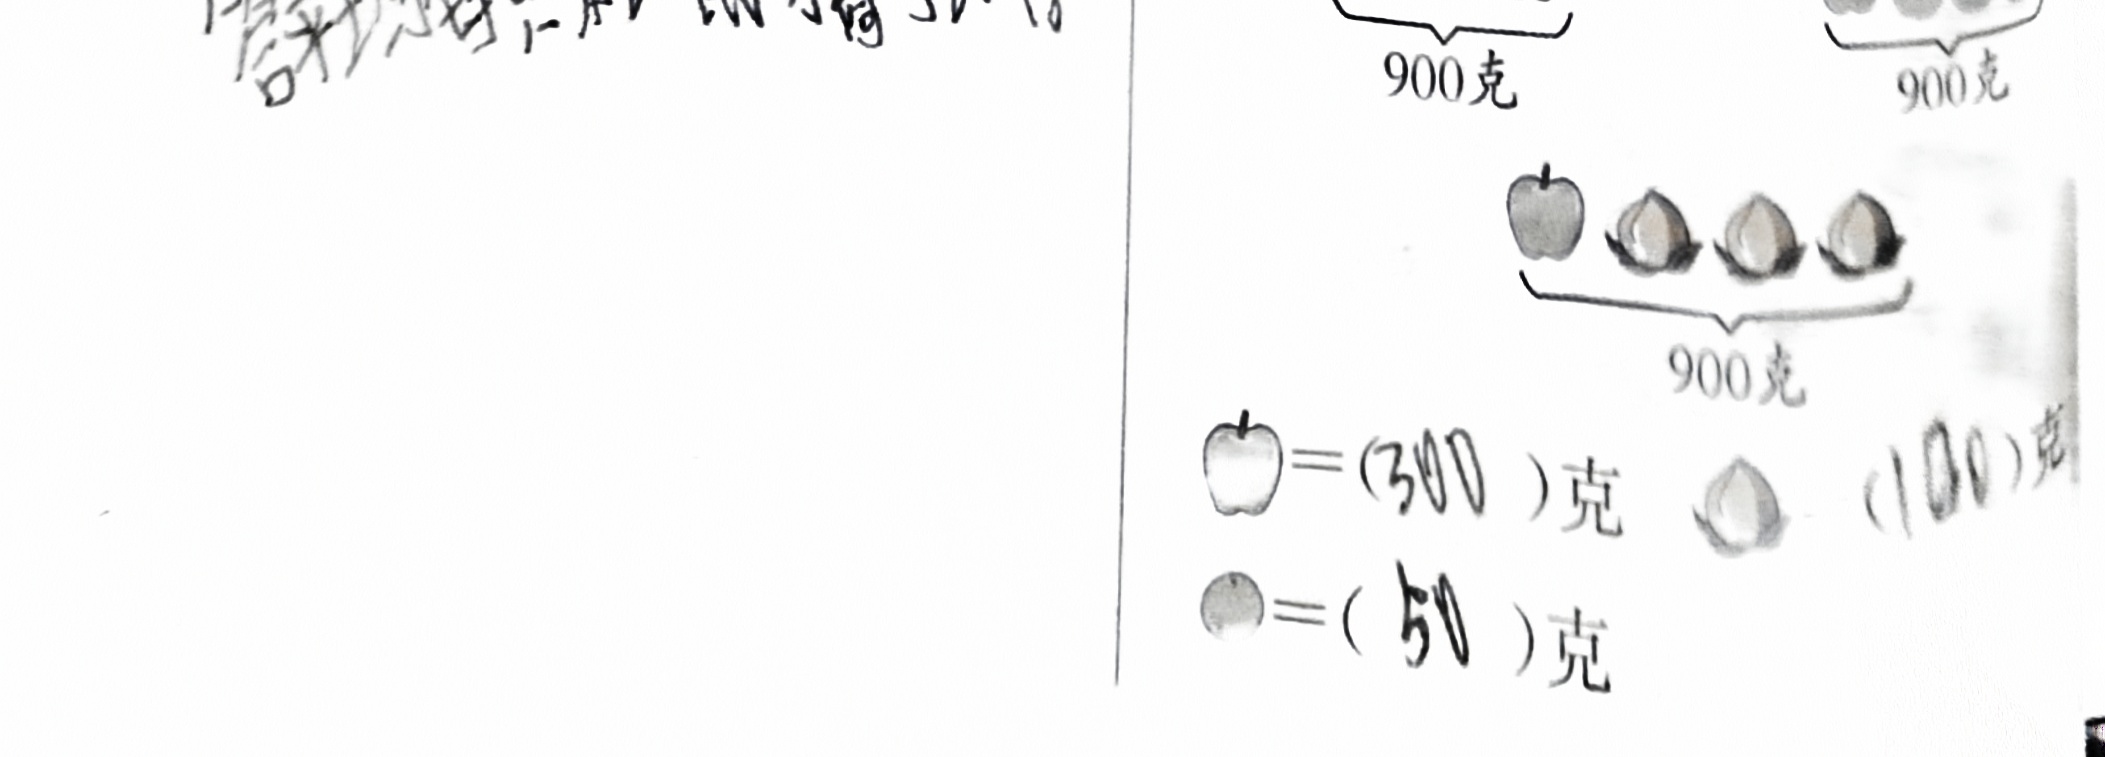 900克
900克
900克
=(300)克 (100)克
=(50)克